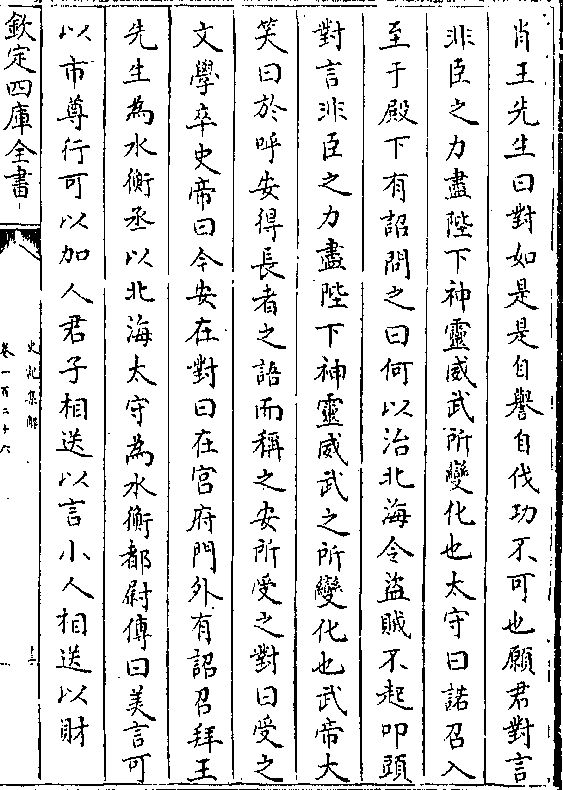 肖王先生曰對如是是自譽自伐功不可也願君對言
非臣之力盡陛下神靈威武所變化也太守曰諾召入
至于殿下有詔問之曰何以治北海令盜賊不起叩頭
對言非臣之力盡陛下神靈威武之所變化也武帝大
笑曰於呼安得長者之語而稱之安所受之對曰受之
文學卒史帝曰今安在對曰在宫府門外有詔召拜王
先生為水衡丞以北海太守為水衡都尉傳曰美言可
以市尊行可以加人君子相送以言小人相送以財
欽定四庫全書
史記集解
卷一百二十六